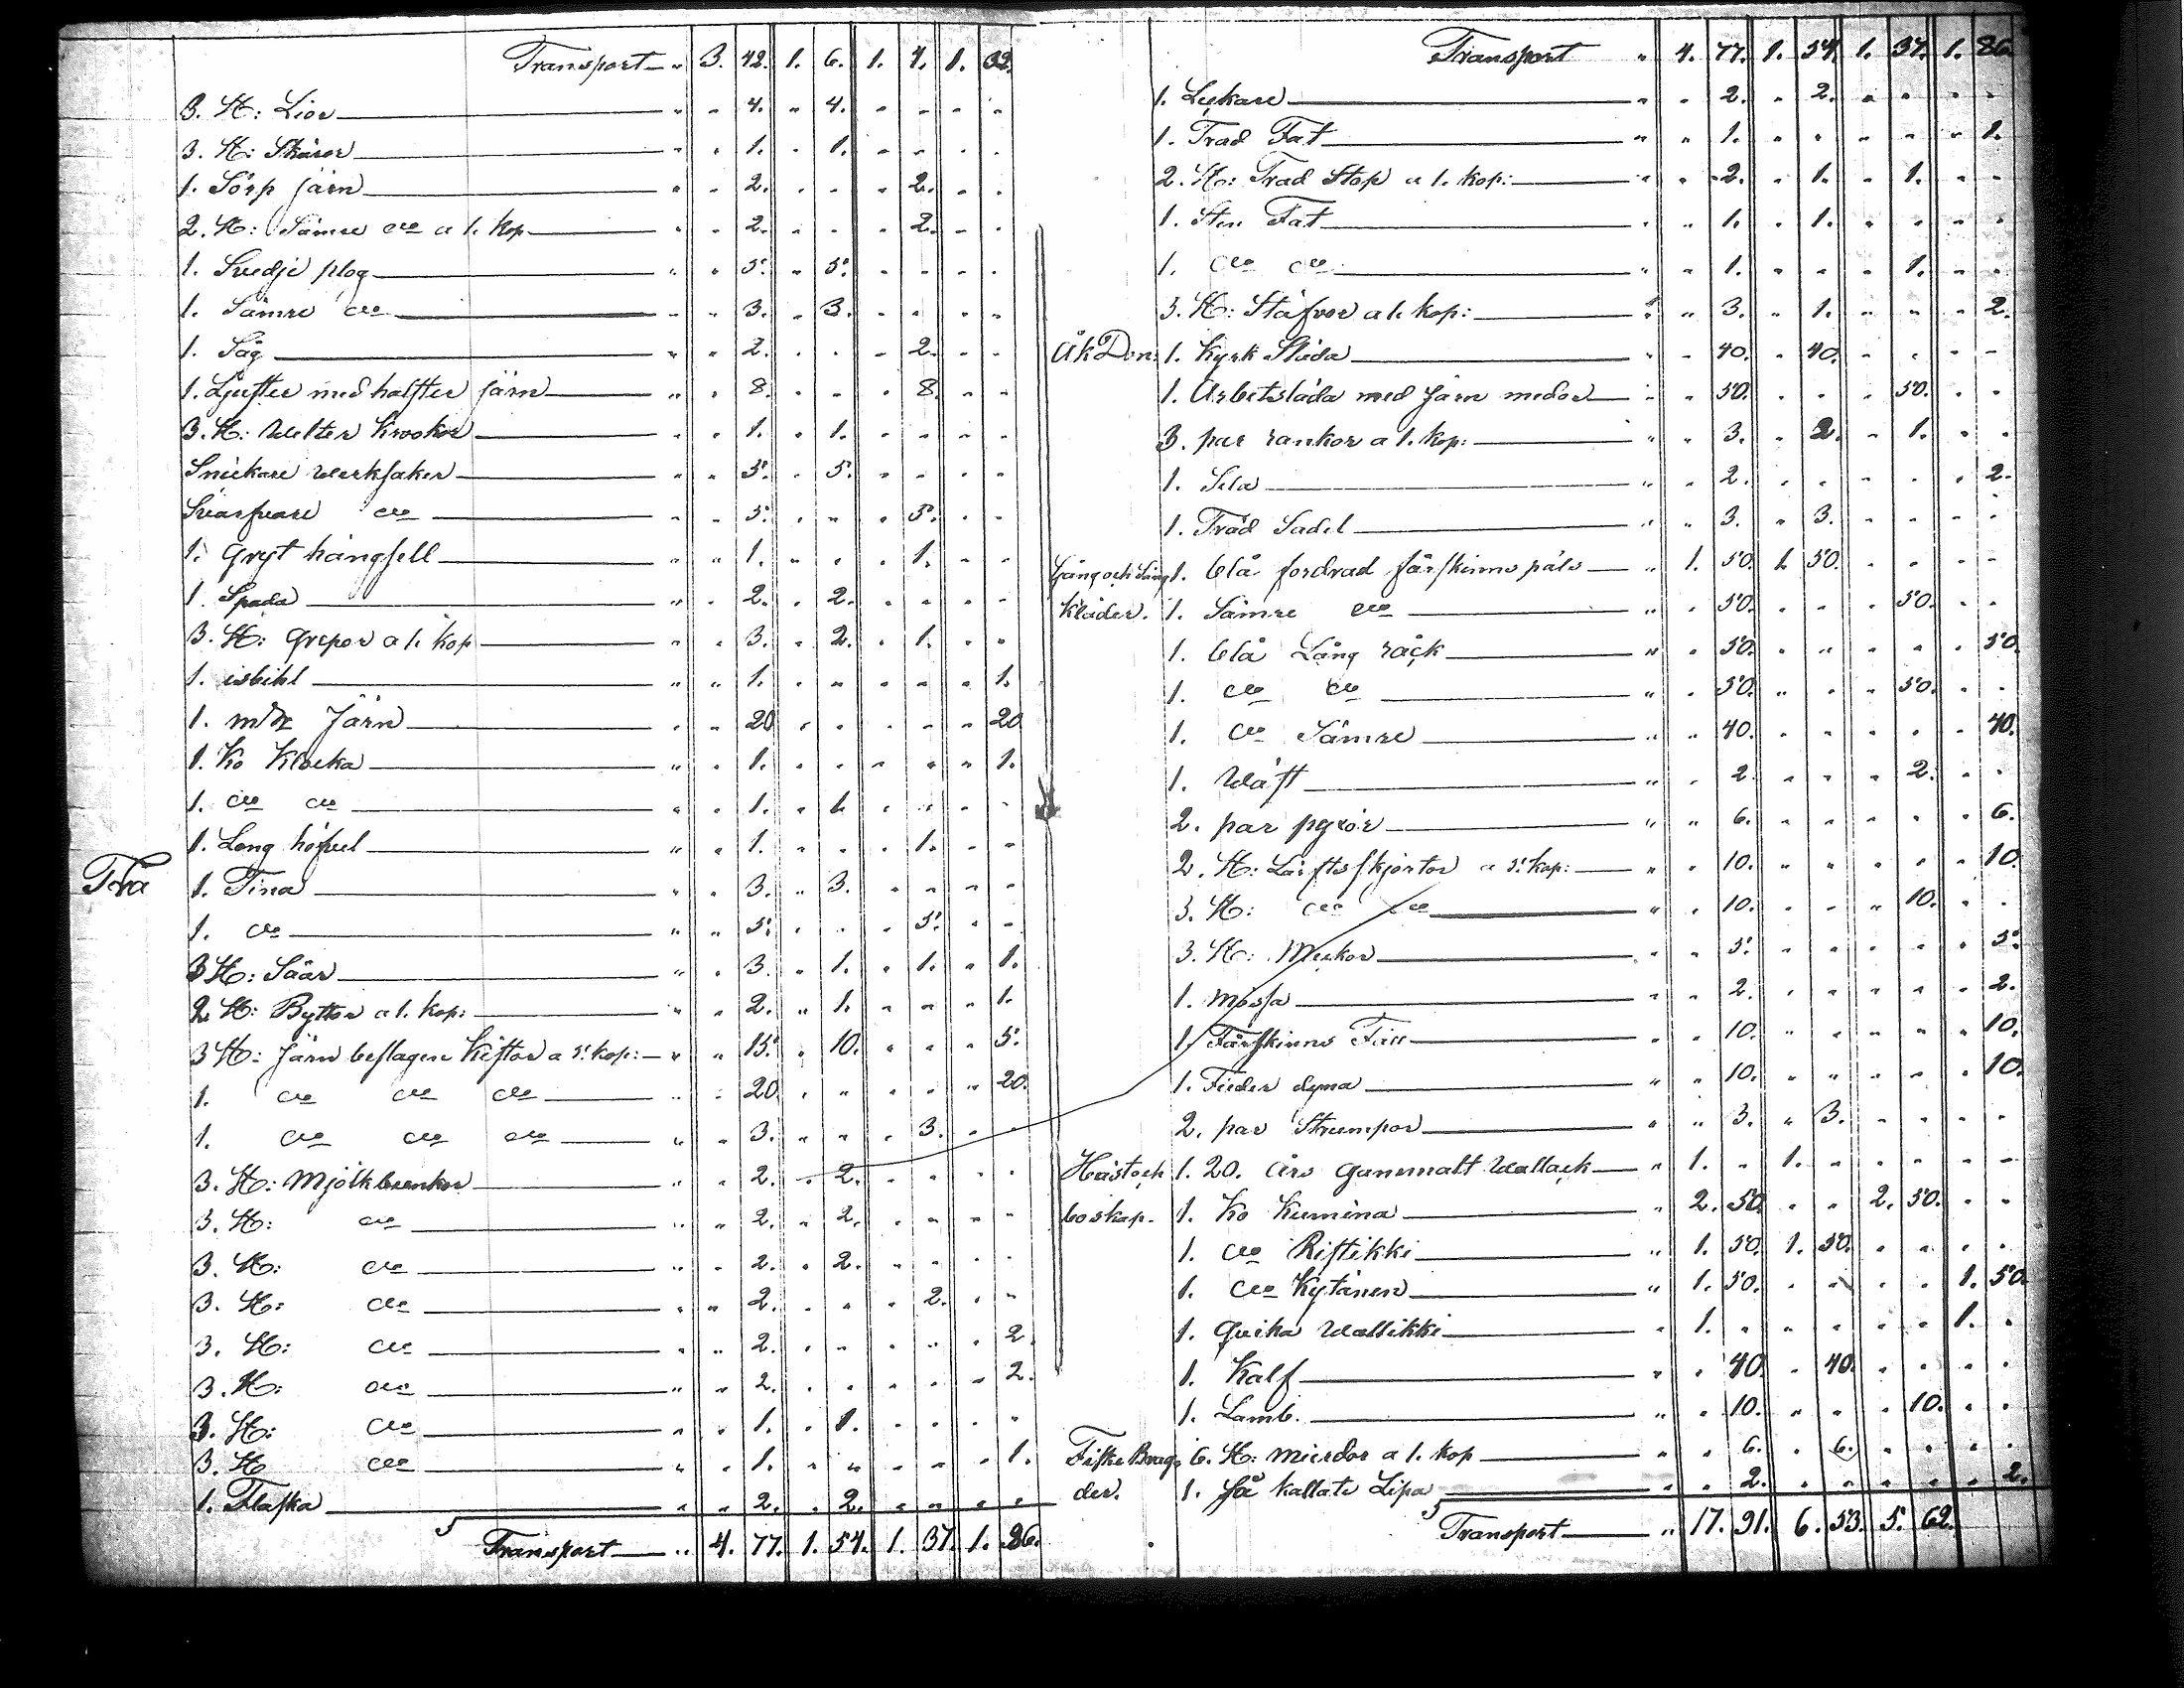 Transport " 3. 42. 1. 6. 1. 4. 1. 32.
3. St: Lior " " 4. " 4. " " " "
3. St: Skäror " " 1. " 1. " " " "
1. Sörp järn " " 2. " " " 2. " "
2. St: Sämre dito a 1. kop " " 2. " " " 2. " "
1. Svedje plog " " 5. " 5. " " " "
1. Sämre dito " " 3. " 3. " " " "
1. Såg " " 2. " " " 2. " "
1. Ljuster med halfter järn " " 8. " " " 8. " "
3. St: Welter Krookor " " 1. " 1. " " " "
Snickare Werksaker " " 5. " 5. " " " "
Svarfvare dito " " 5. " " " 5. " "
1. Gryt hängsell " " 1. " " " 1. " "
1. Spada " " 2. " 2. " " " "
3. St: Grepor a 1. kop " " 3. " 2. " 1. " "
1. isbihl " " 1. " " " " " 1.
1. Järn " " 20 " " " " " 20
1. Ko Klocka " " 1. " " " " " 1.
1. dito dito " " 1. " 1. " " " "
1. Long höfvel " " 1. " " " 1. " "
Trä 1. Tina " " 3. " 3. " " " "
1. dito " " 5. " " " 5. " "
3 St: Såar " " 3. " 1. " 1. " 1.
2 St: Byttor a 1. kop: " " 2. " 1. " " " 1.
3 St: Järn beslagen Kistor a 5. kop: " " 15. " 10. " " " 5.
1. dito dito dito " " 20 " " " " " 20.
1. dito dito dito " " 3. " " " 3. " "
3. St: Mjölkbunkor " " 2. " 2. " " " "
3. St: dito " " 2. " 2. " " " "
3. St: dito " " 2. " 2. " " " "
3. St: dito " " 2. " " " 2. " "
3. St: dito " " 2. " " " " " 2
3. St: dito " " 2. " " " " " 2.
3. St: dito " " 1. " 1. " " " "
3. St dito " " 1. " " " " " 1.
1. Flaska " " 2. " 2. " " " "
Transport " 4. 77. 1. 54. 1. 37. 1. 86.
Transport " 4. 77. 1. 54. 1. 37. 1. 86.
1. Lyckare " " 2. " 2. " " " "
1. Träd Fat " " 1. " " " " " 1.
2. St: Träd Stop a 1. kop: " " 2. " 1. " 1. " "
1. Sten Fat " " 1. " 1. " " " "
1. dito dito " " 1. " " " 1. " "
3. St: Stäfvor a 1. kop: " " 3. " 1. " " " 2.
Åk Don: 1. Kyrk Släda " " 40. " 40. " " " "
1. Arbetsläda med Järn medor " " 50. " " " 50. " "
3. par rankor a 1. kop: " " 3. " 2. " 1. " "
1. Sela " " 2. " " " " " 2.
1. Träd Sadel " " 3. " 3. " " " "
Gång och Säng 1. blå fordrad fårskinns päls " 1. 50. 1. 50. " " " "
kläder. 1. Sämre dito " " 50. " " " 50. " "
1. blå Lång råck " " 50. " " " " " 50.
1. dito dito " " 50. " " " 50. " "
1. dito Sämre " " 40. " " " " " 40.
1. Wäst " " 2. " " " 2. " "
2. par " " 6. " " " " " 6.
2. St: Lärftsskjortor a 5. kop: " " 10. " " " " " 10.
3. St: dito dito " " 10. " " " 10. " "
3. St: " " 5. " " " " " 5.
1. Mössa " " 2. " " " " " 2.
1. Fårskinns Fäll " " 10. " " " " " 10.
1. Fieder dyna " " 10. " " " " " 10.
2. par Strumpor " " 3. " 3. " " " "
Häst och 1. 20. års gammalt Wallack " 1. " 1. " " " " "
boskap. 1. Ko Kumina " 2. 50. " " 2. 50. " "
1. dito Ristikki " 1. 50. 1. 50. " " " "
1. dito Kytänen " 1. 50. " " " " 1. 50.
1. Quika Wallikki " 1. " " " " " 1. "
1. Kalf " " 40. " 40. " " " "
1. Lamb. " " 10. " " " 10. " "
Fiske Brag= 6. St: mierdor a 1. kop " " 6. " 6. " " " "
der. 1. så kallate Lipa " " 2. " " " " " 2.
Transport " 17. 91. 6. 53. 5. 62.